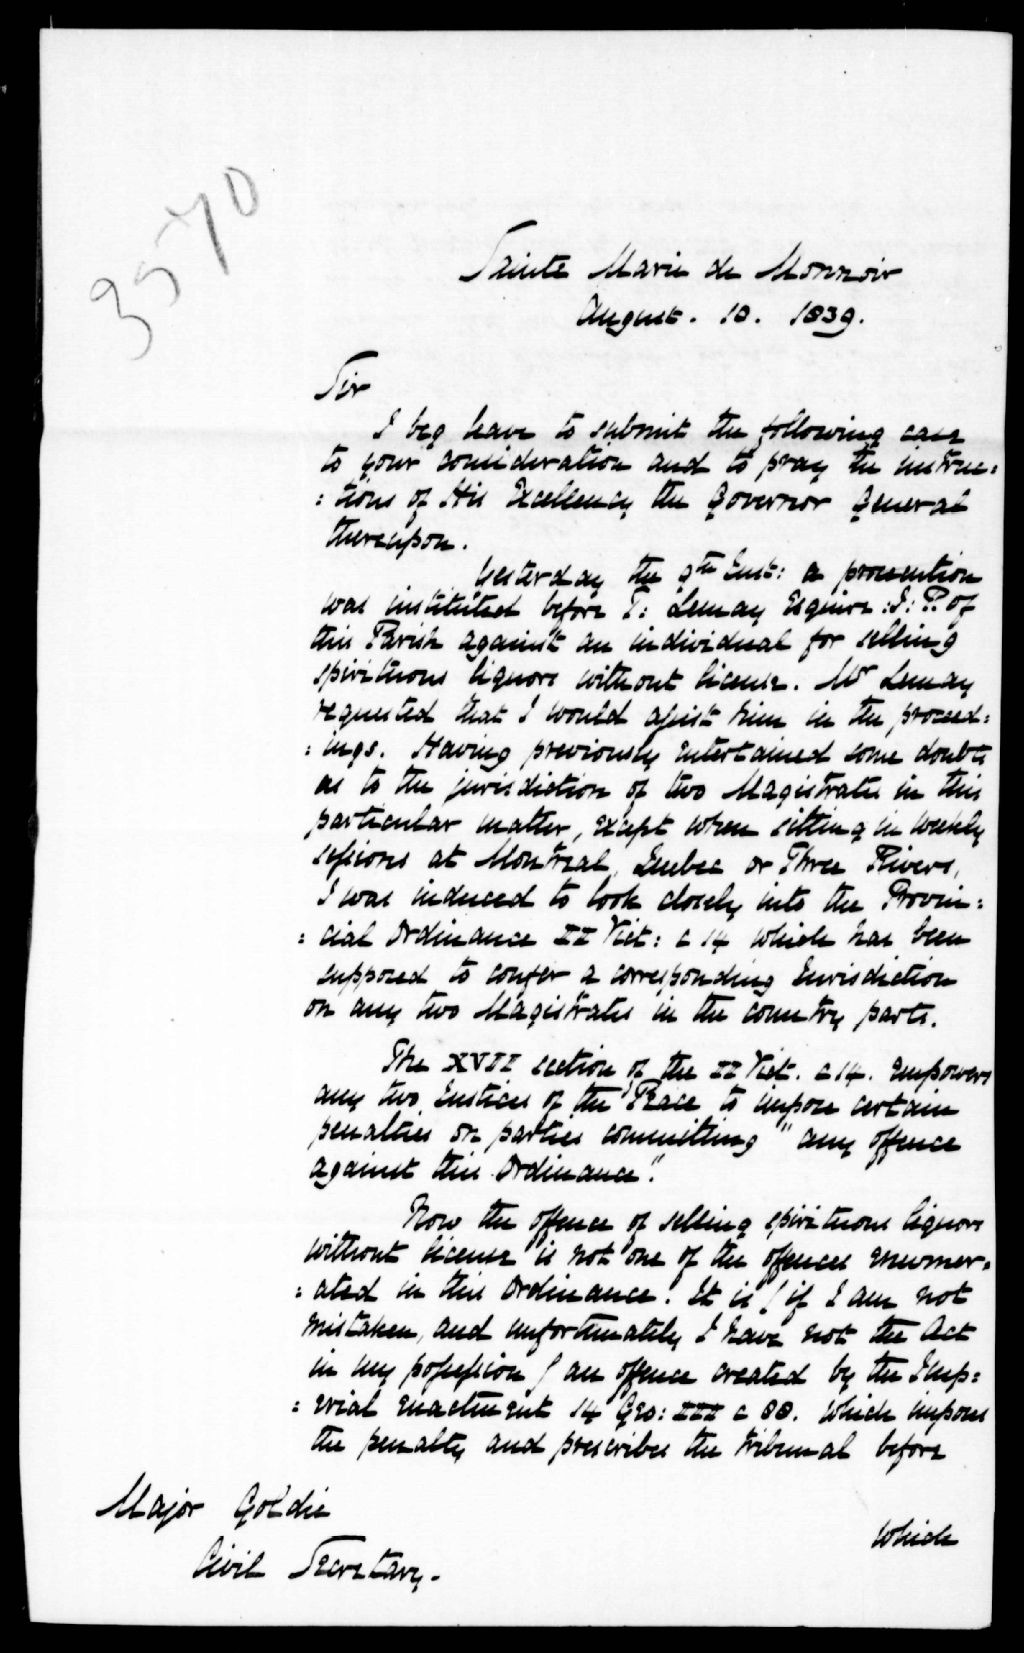 3570
Sainte Marie de Monnoir
August. 10. 1839.
Sir
I beg leave to submit the following case
to your consideration and to pray the instruc:
:tions of His Excellency the Governor General
thereupon.
Yesterday the 9th Inst: a prosecution
was instituted before T: Lemay Esquire :J: P. of
this Parish against an individual for selling
spirituous liquors without license. Mr Lemay
requested that I would assist him in the proceed:
:ings. Having previously entertained some doubts
as to the jurisdiction of two Magistrates in this
particular matter, except when sitting in weekly
sessions at Montreal, Quebec or Three Rivers,
I was induced to look closely into the Provin:
:cial Ordinance II Vict: c 14 which has been
supposed to confer a corresponding Jurisdiction
on any two Magistrates in the country parts.
The XVII section of the II Vict. c 14. empowers
any two Justices of the Peace to impose certain
penalties on parties committing "any offence
against this Ordinance".
Now the offence of selling spirituous liquors
without license is not one of the offences enumer:
:ated in this Ordinance. It is ( if I am not
mistaken, and unfortunately I have not the Act
in my possession ) an offence created by the Imp:
:erial enactment 14 Geo: III c 88. which imposes
the penalty and prescribes the tribunal before
which
Major Goldie
Civil Secretary.